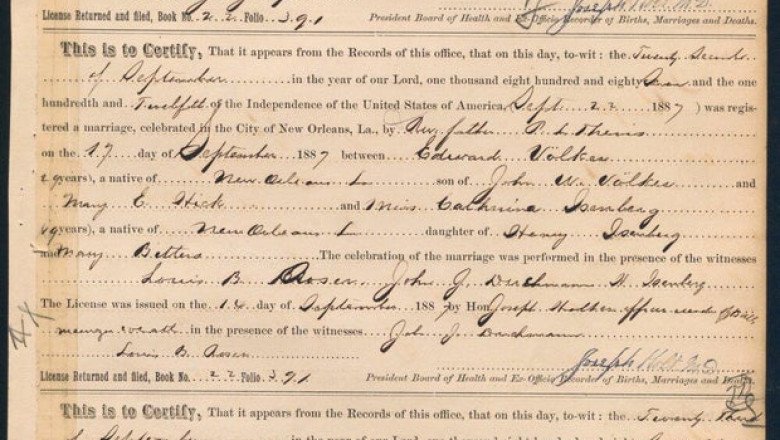 License Returned and filed, Book No. 22 Folio 391
President Board of Health and Ex-Officio Recorder of Births, Marriages and Deaths.
This is to Certify, That it appears from the Records of this office, that on this day, to-wit: the Twenty Second
of September in the year of our Lord, one thousand eight hundred and eighty Seven and the one
hundredth and Twelfth of the Independence of the United States of America, Sept 22 1887) was regis-
tered a marriage, celebrated in the City of New Orleans, La., by Rev father P. L.
on the 17 day of September 1887 between Edward Volker
29 years), a native of New Orleans L son of John W. Volker and
Mary E and Miss Cathrina Isenberg
years), a native of New Orleans L daughter of Henry Isenberg
and Mary Betters The celebration of the marriage was performed in the presence of the witnesses
Louis B. Rosen John J. H. Isenberg
The License was issued on the 14 day of September 1887 by Hon. Joseph
in the presence of the witnesses Joh J.
Louis B. Rosen
Joseph
License Returned and filed, Book No. 22 Folio 391
President Board of Health and Ex-Officio Recorder of Births, Marriages and Deaths.
This is to Certify, That it appears from the Records of this office, that on this day, to-wit: the Twenty Third
of September in the year of our Lord, one thousand eight hundred and eighty